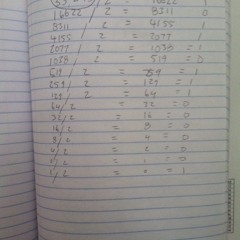 / 2 = 16622 1
16622 / 2 = 8311 0
8311 / 2 = 4155 1
4155 / 2 = 2077 1
2077 / 2 = 1038 = 1
1038 / 2 = 519 = 0
519 / 2 = 259 = 1
259 / 2 = 129 = 1
129 / 2 = 64 = 1
64 / 2 = 32 = 0
32 / 2 = 16 = 0
16 / 2 = 8 = 0
8 / 2 = 4 = 0
4 / 2 = 2 = 0
2 / 2 = 1 = 0
1 / 2 = 0 = 1